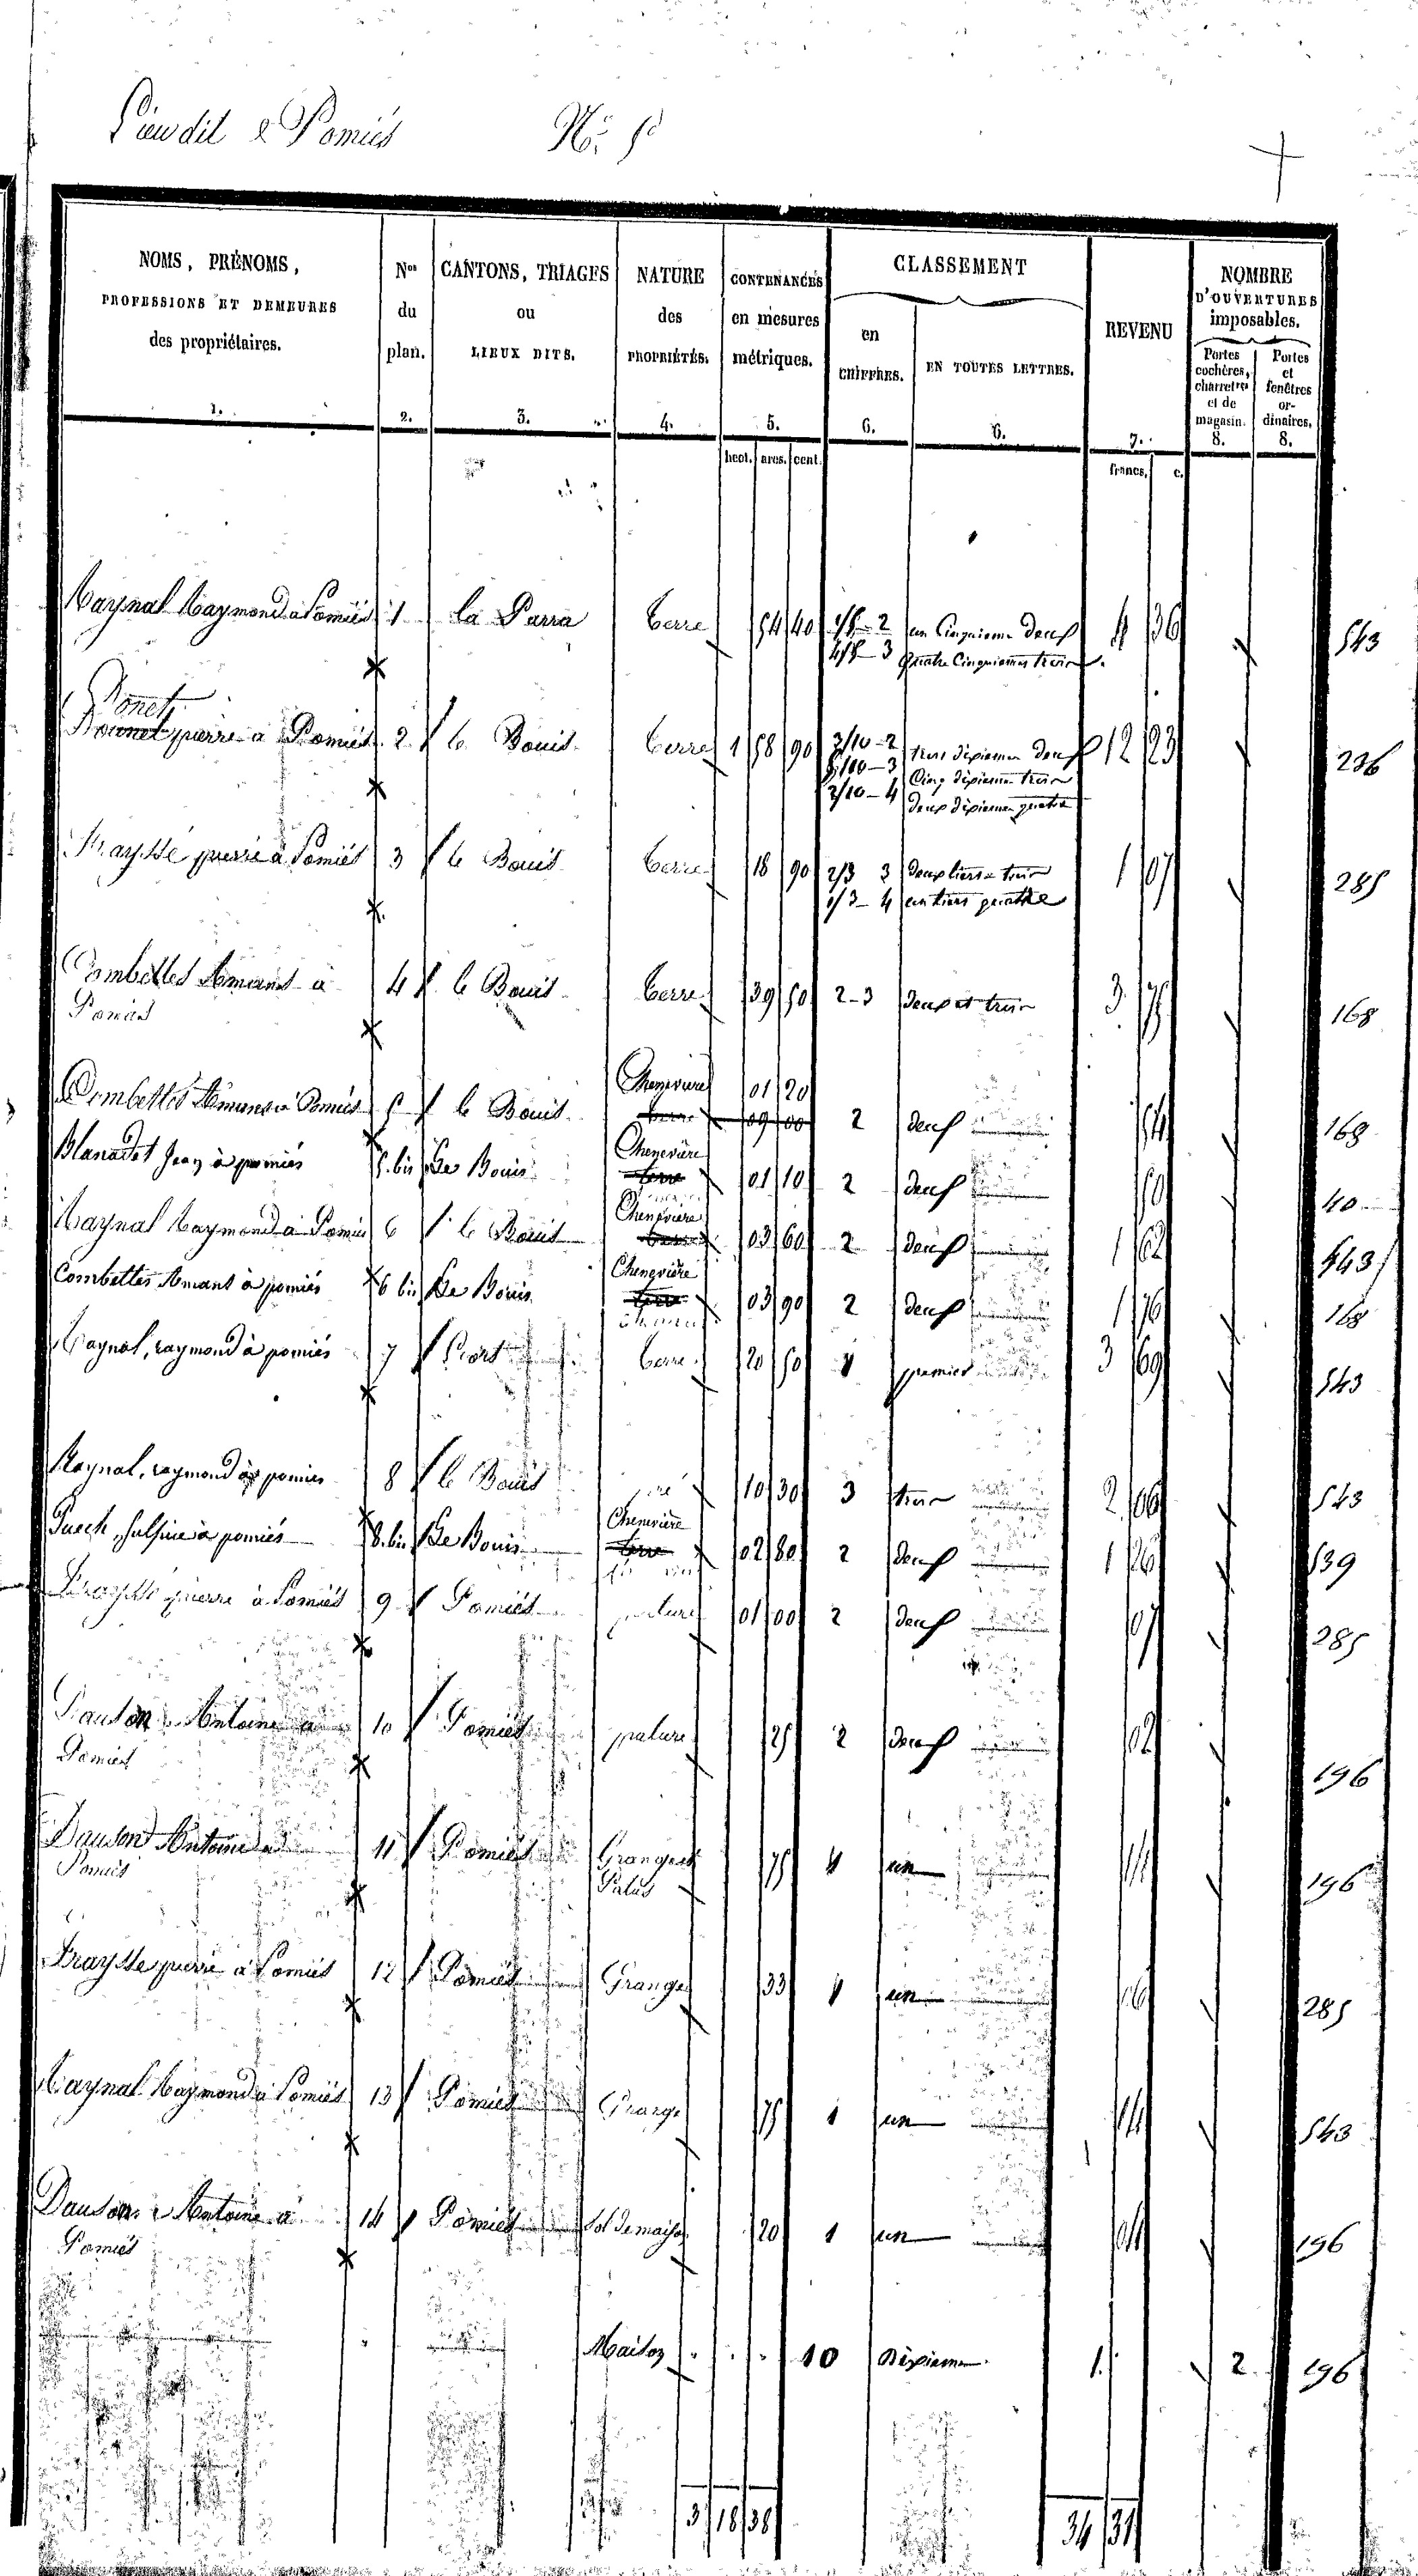 Lieu dit & Pomiés
NOMS, PRÉNOMS,
PROFESSIONS ET DEMEURES
des propriétaires.
1.
Nos
du
plan.
2.
CANTONS, TRIAGES
ou
LIEUX DITS.
3.
NATURE
des
PROPRIÉTÉS.
4.
CONTENANCES
en mesures
métriques.
5.
hect. ares. cent.
CLASSEMENT
en
CHIFFRES.
6.
EN TOUTES LETTRES.
6.
REVENU
7.
francs. c.
NOMBRE
D'OUVERTURES
imposables.
Portes
cochères,
charretres
et de
magasin.
8.
Portes
et
fenêtres
or-
dinaires.
8.
Raynal Raymond à Pomiés 1 la Parra terre 54 40 1/5 - 2 un Cinquieme deux 4 36 543
4/5 - 3 quatre Cinquiemes trois
Donet
pierre à Pomiés 2 le Bouis terre 1 58 90 3/10 - 2 trois dixiemes deux 12 23 236
5/10 - 3 Cinq dixiemes trois
2/10 - 4 deux dixiemes quatre
Fraysse pierre à Pomiés 3 le Bouis terre 18 90 2/3 3 deux tiers trois 1 07 285
1/3 - 4 un tiers quatre
Combettes Amans à 4 le Bouis terre 39 50 2-3 deux et trois 3 75 168
Pomiés
Combettes Amans à Pomiés 5 le Bouis Chenevière 01 20 2 deux 54 168
terre 09 00
Blanadet Jean à pomiés 5 bis Le Bouis Chenevière 01 10 2 deux 50 40
terre
Raynal Raymond à Pomiés 6 le Bouis Chenevière 03 60 2 deux 1 62 543
terre
Combettes Amant à pomiés 6 bis Le Bouis Chenevière 03 90 2 deux 1 76 168
terre
Raynal, raymond à pomiés 7 l'ort terre 20 50 1 premier 3 69 543
Raynal, raymond à pomies 8 le Bouis pré 10 30 3 trois 2 06 543
Puech, à pomiés 8 bis Le Bouis Chenevière 02 80 2 deux 1 26 539
terre
Fraysse pierre à Pomiés 9 Pomiés pature 01 00 2 deux 07 285
Dauson Antoine à 10 Pomiés pature 25 2 deux 02 196
Pomiés
Dauson Antoine à 11 Pomiés Grange et 75 1 un 14 196
Pomiés Patus
Fraysse pierre à Pomiés 12 Pomiés Grange 33 1 un 06 285
Raynal Raymond à Pomiés 13 Pomiés Grange 75 1 un 14 543
Dauson Antoine à 14 Pomiés Sol de maison 20 1 un 04 196
Pomiés
Maison 10 Dixieme 1 2 196
3 18 38 34 31